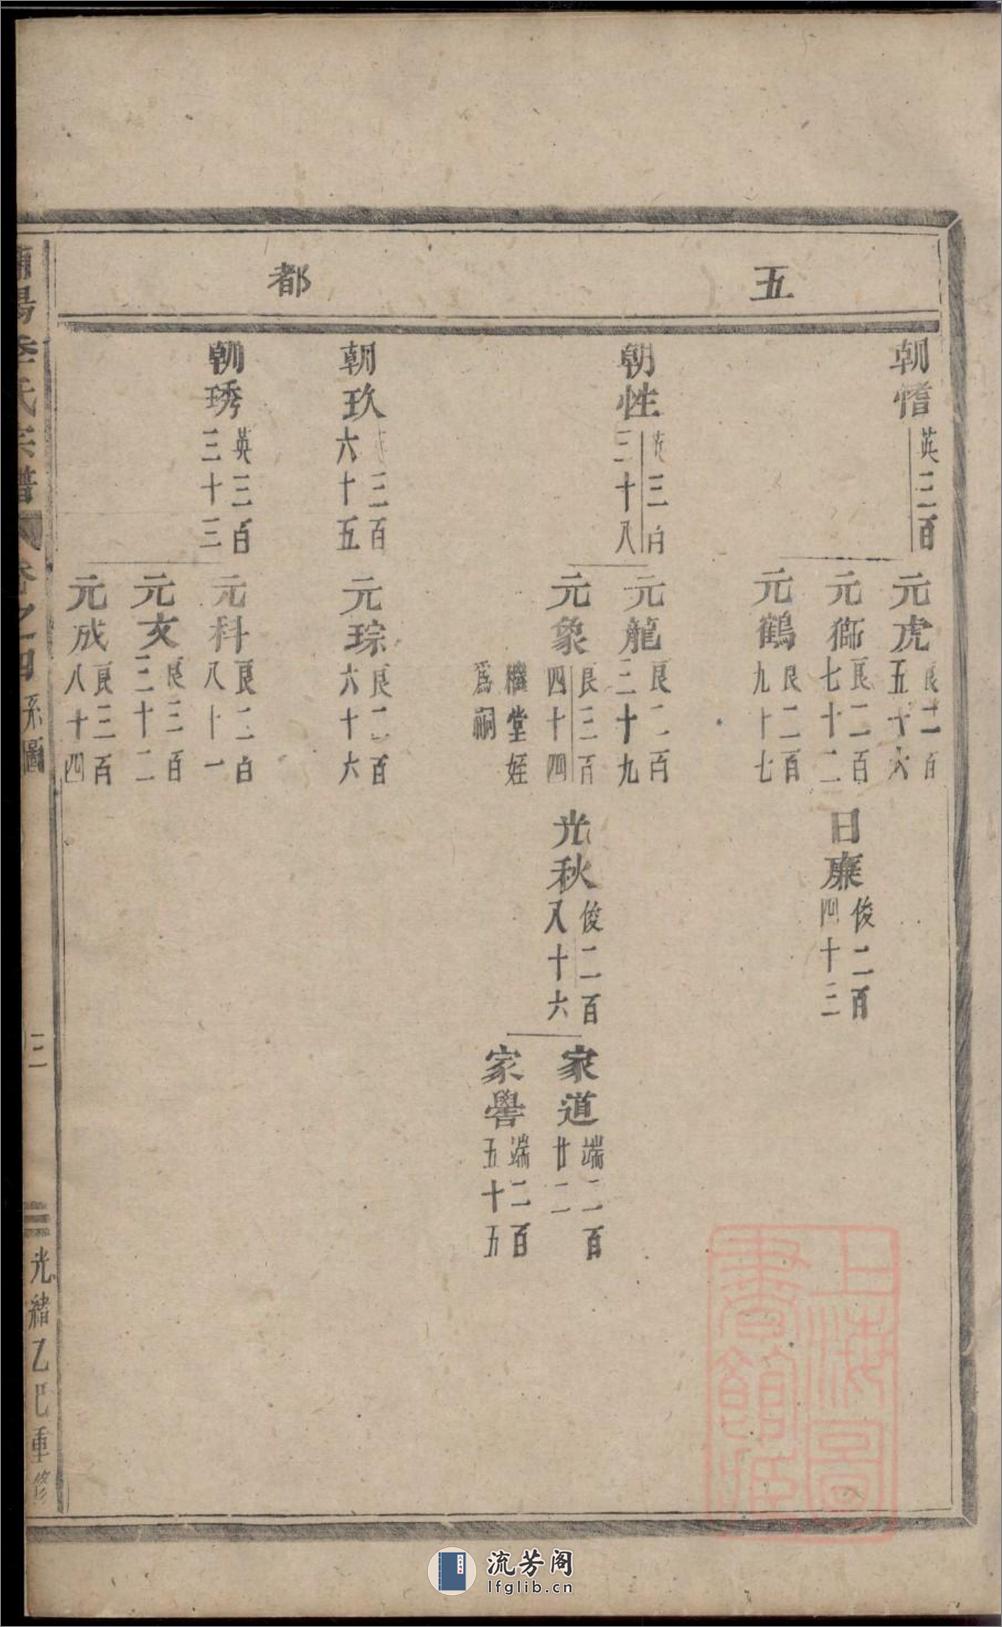 五
都
朝愭 英三百
元虎 艮二百五十六
元獅 艮二百七十二
日廉 俊二百四十三
元鶴 艮二百九十七
朝性 英三百三十八
元龍 艮二百三十九
元象 艮三百四十四
繼堂姪爲嗣
光秋 俊二百八十六
家道 端二百廿二
家譽 端二百五十五
朝玖 英三百六十五
元琮 艮二百六十六
朝琇 英三百三十三
元科 艮二百八十一
元亥 艮三百三十二
元成 艮三百八十四
氏宗譜 卷之四 系圖
三
光緒乙巳重修
上海圖書館藏
流芳阁
lfglib.cn